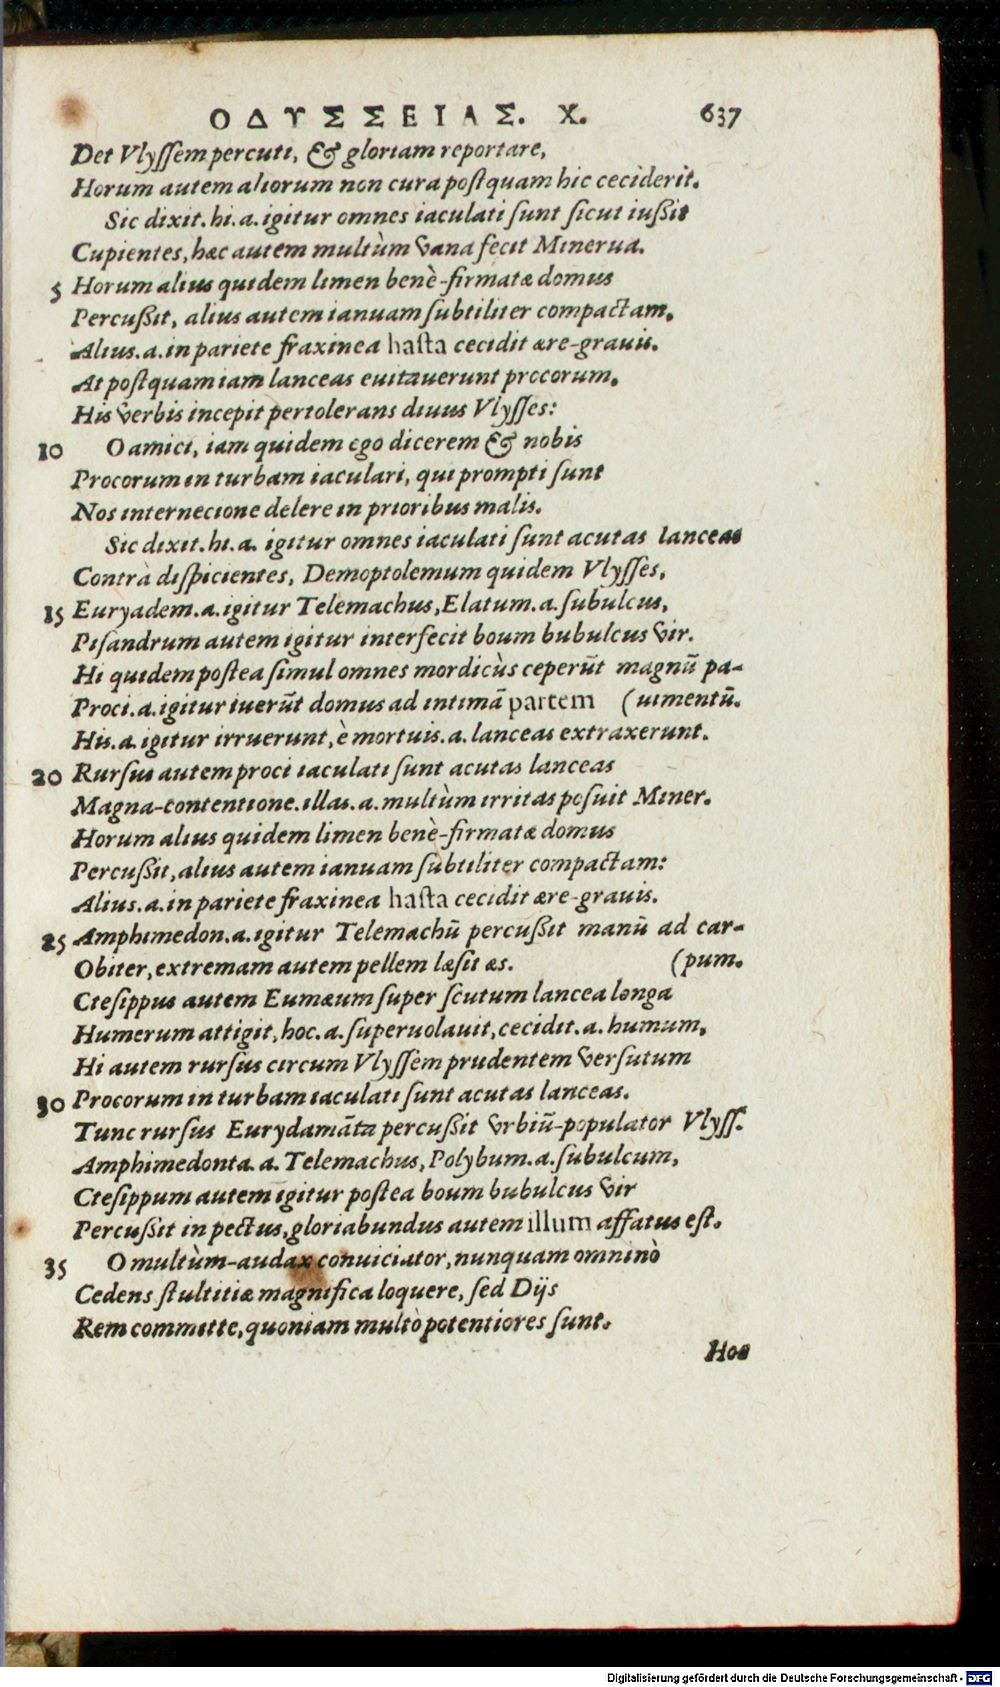 ΟΔΥΣΣΕΙΑΣ. Χ. 637
Det Vlyſſem percuti, & gloriam reportare,
Horum autem aliorum non cura poſtquam hic ceciderit.
Sic dixit. hi. a. igitur omnes iaculati ſunt ſicut iußit
Cupientes, hæc autem multùm vana fecit Minerua.
5 Horum alius quidem limen benè-firmatæ domus
Percußit, alius autem ianuam ſubtiliter compactam.
Alius. a. in pariete fraxinea haſta cecidit ære-grauis.
At poſtquam iam lanceas euitauerunt procorum.
His verbis incepit pertolerans diuus Vlyſſes:
10 O amici, iam quidem ego dicerem & nobis
Procorum in turbam iaculari, qui prompti ſunt
Nos internecione delere in prioribus malis.
Sic dixit. hi. a. igitur omnes iaculati ſunt acutas lanceas
Contrà diſpicientes, Demoptolemum quidem Vlyſſes,
15 Euryadem. a. igitur Telemachus, Elatum. a. ſubulcus,
Piſandrum autem igitur interfecit boum bubulcus vir.
Hi quidem poſtea ſimul omnes mordicùs ceperũt magnũ pa-
Proci. a. igitur iuerũt domus ad intimã partem (uimentũ.
His. a. igitur irruerunt, è mortuis. a. lanceas extraxerunt.
20 Rurſus autem proci iaculati ſunt acutas lanceas
Magna-contentione. illas. a. multùm irritas poſuit Miner.
Horum alius quidem limen benè-firmatæ domus
Percußit, alius autem ianuam ſubtiliter compactam:
Alius. a. in pariete fraxinea haſta cecidit ære-grauis.
25 Amphimedon. a. igitur Telemachũ percußit manũ ad car-
Obiter, extremam autem pellem læſit æs. (pum.
Cteſippus autem Eumæum ſuper ſcutum lancea longa
Humerum attigit, hoc. a. ſuperuolauit, cecidit. a. humum,
Hi autem rurſus circum Vlyſſem prudentem verſutum
30 Procorum in turbam iaculati ſunt acutas lanceas.
Tunc rurſus Eurydamãta percußit vrbiũ-populator Vlyſſ.
Amphimedonta. a. Telemachus, Polybum. a. ſubulcum,
Cteſippum autem igitur poſtea boum bubulcus vir
Percußit in pectus, gloriabundus autem illum affatus eſt.
35 O multùm-audax conuiciator, nunquam omninò
Cedens ſtultitiæ magnifica loquere, ſed Dijs
Rem committe, quoniam multò potentiores ſunt.
Hoc
Digitalisierung gefördert durch die Deutsche Forschungsgemeinschaft - DFG